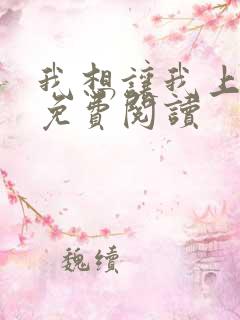 我想讓我上
免費閱讀
魏續